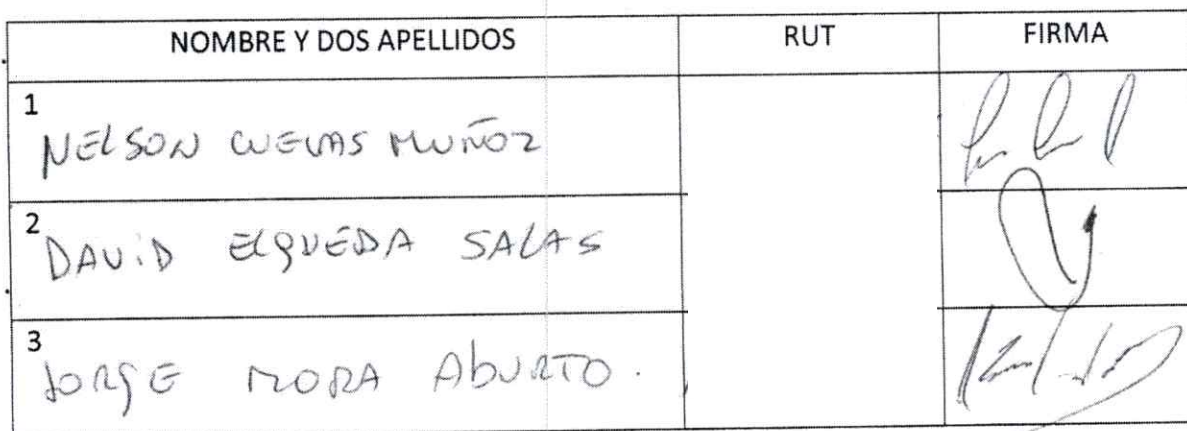 NOMBRE Y DOS APELLIDOS RUT FIRMA
1
NELSON CUEVAS MUÑOZ
2
DAVID ELQUEDA SALAS
3
JORGE MORA ABURTO.